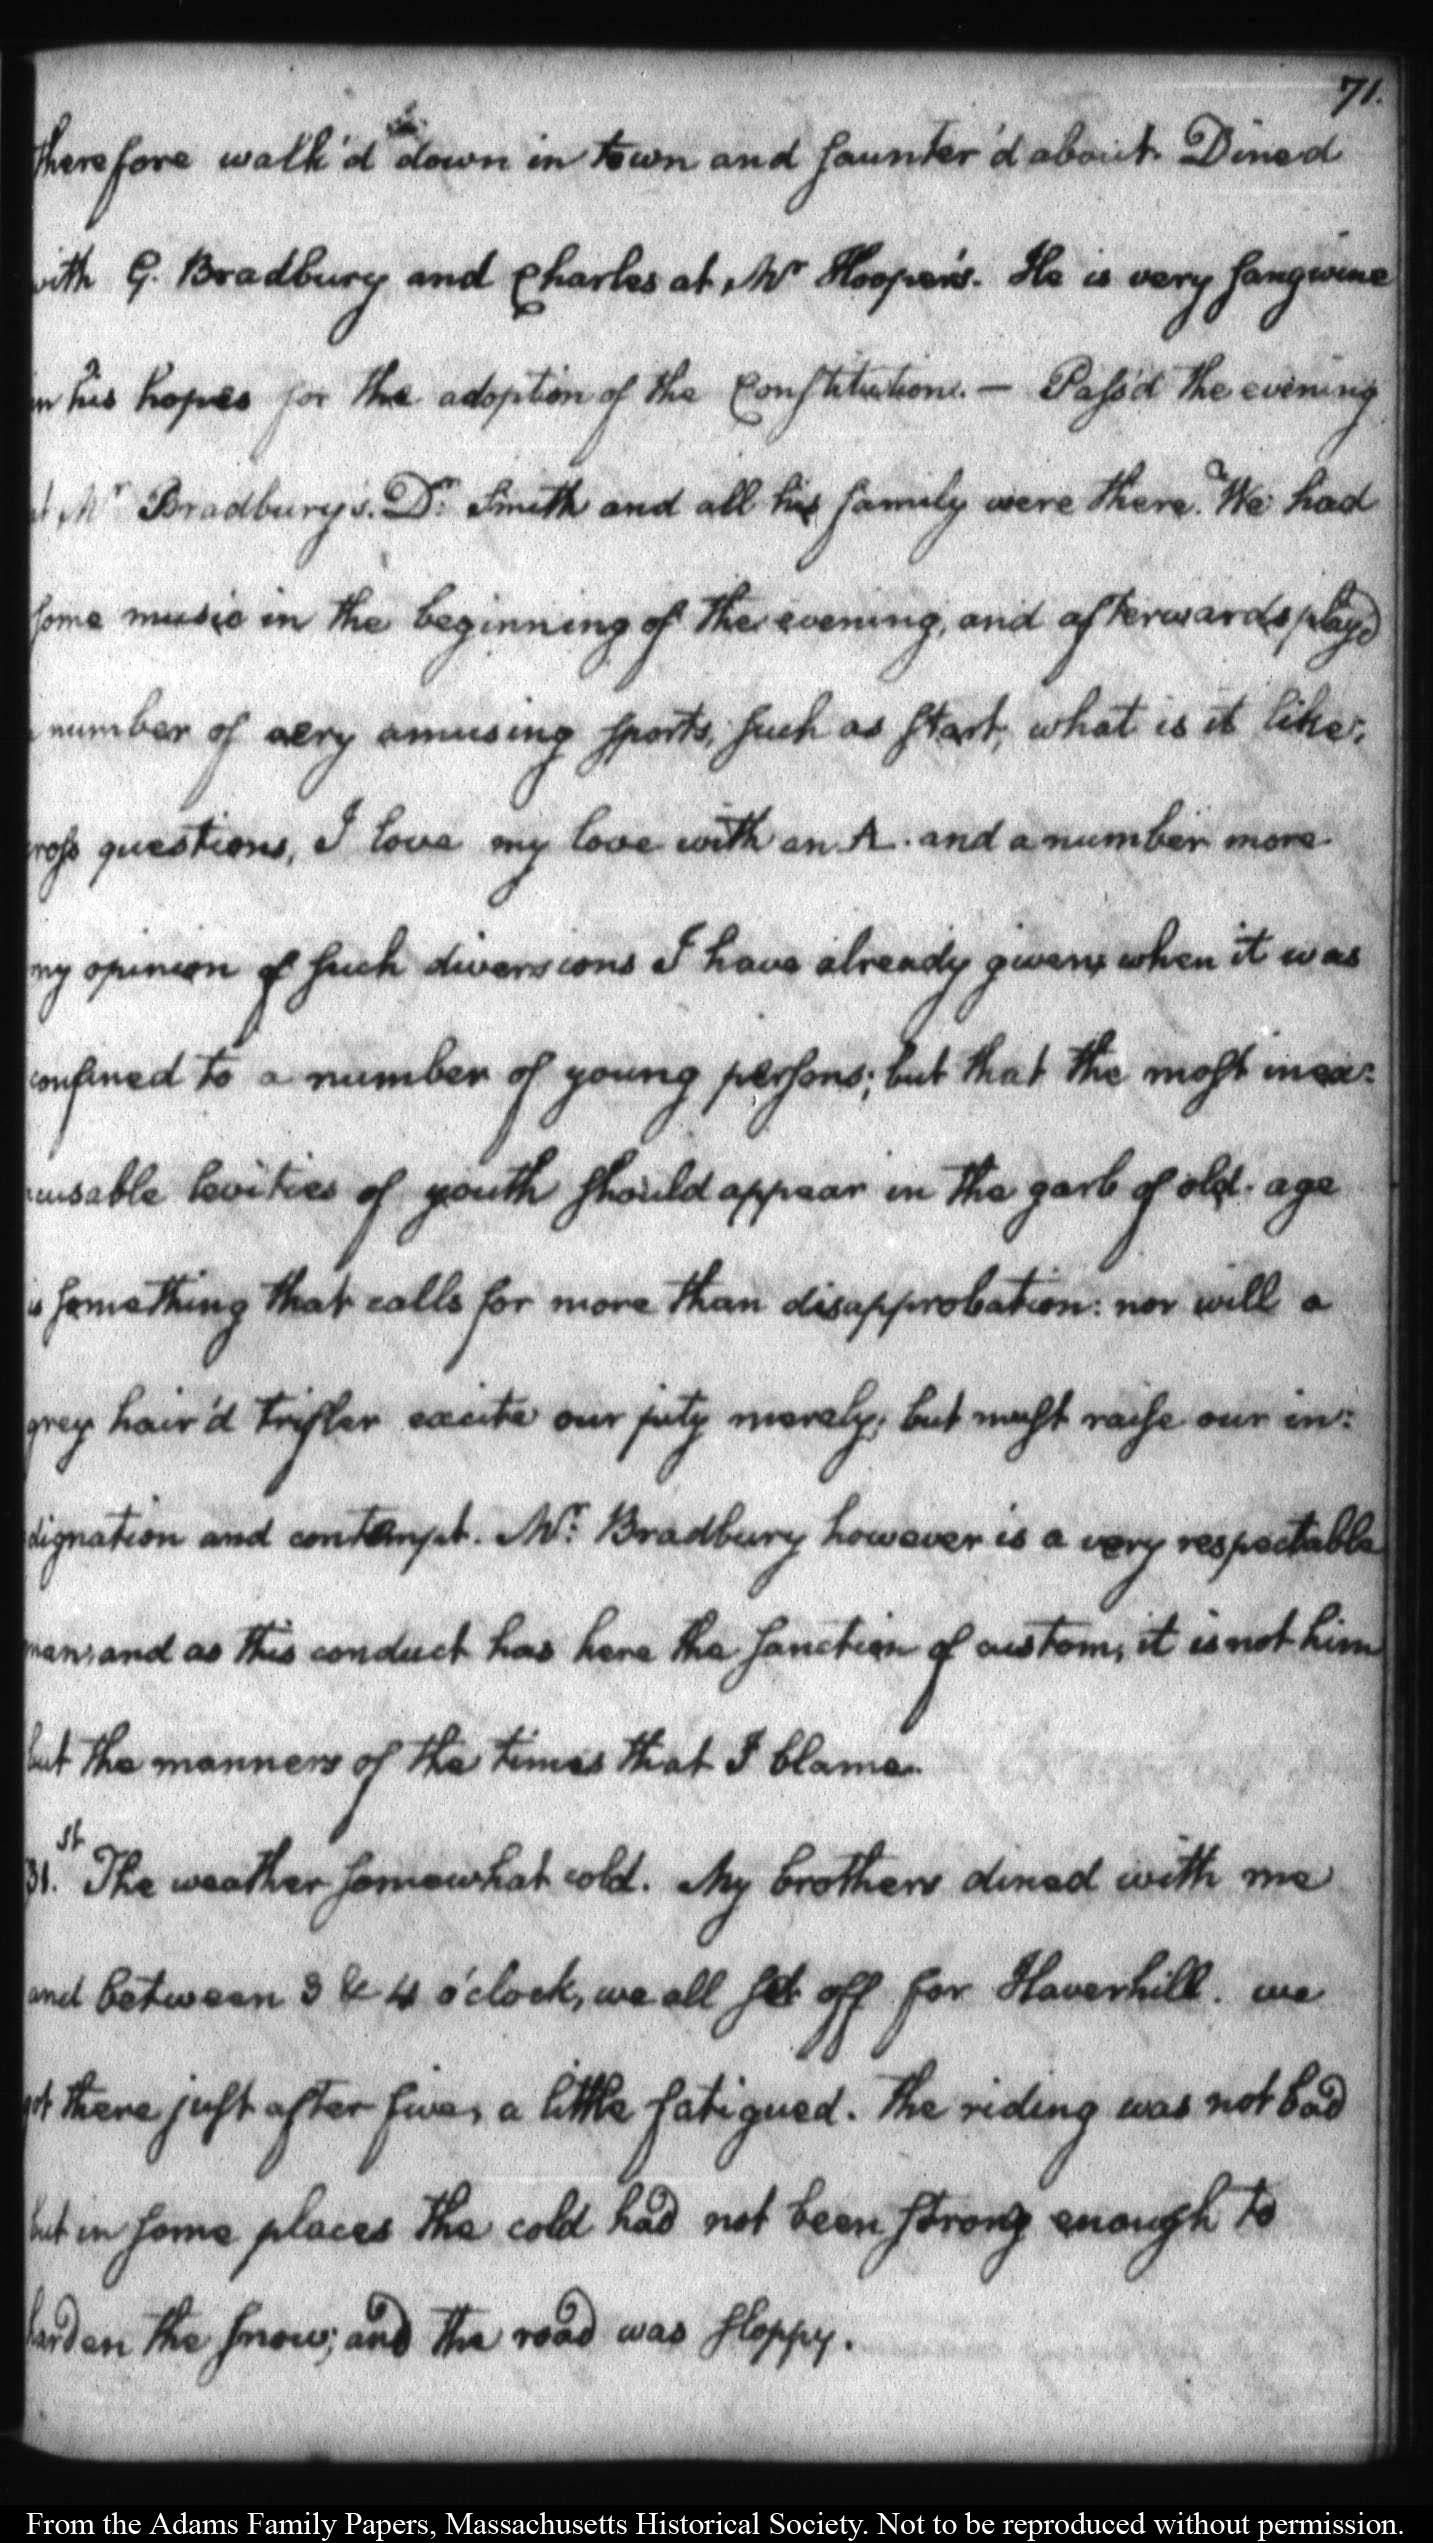 71.
therefore walk'd down in town and saunter'd about. Dined
with G. Bradbury and Charles at Mr Hooper's. He is very sangwine
in his hopes for the adoption of the Constitution. — Pass'd the evening
at Mr Bradbury's. Dr. Smith and all his family were there. We had
some music in the beginning of the evening, and afterwards play'd
a number of very amusing sports, such as start, what is it like,
cross questions, I love my love with an A. and a number more.
my opinion of such diversions I have already given, when it was
confined to a number of young persons; but that the most inex:
cusable levities of youth should appear in the garb of old age
is something that calls for more than disapprobation: nor will a
grey hair'd trifler excite our pity merely; but must raise our in:
dignation and contempt. Mr. Bradbury however is a very respectable
man, and as this conduct has here the sanction of custom, it is not him
but the manners of the times that I blame.
31.st The weather somewhat cold. My brothers dined with me
and between 3 & 4 o'clock, we all set off for Haverhill. we
got there just after five, a little fatigued. The riding was not bad
but in some places the cold had not been strong enough to
harden the snow; and the road was sloppy.
From the Adams Family Papers, Massachusetts Historical Society. Not to be reproduced without permission.